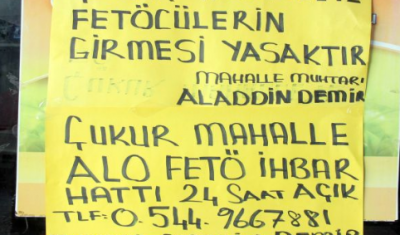 FETÖCÜLERİN
GİRMESİ YASAKTIR
MAHALLE MUHTARI
ALADDİN DEMİR
ÇUKUR MAHALLE
ALO FETÖ İHBAR
HATTI 24 SAAT AÇIK
TLF: 0.544.9667881
DEMİR